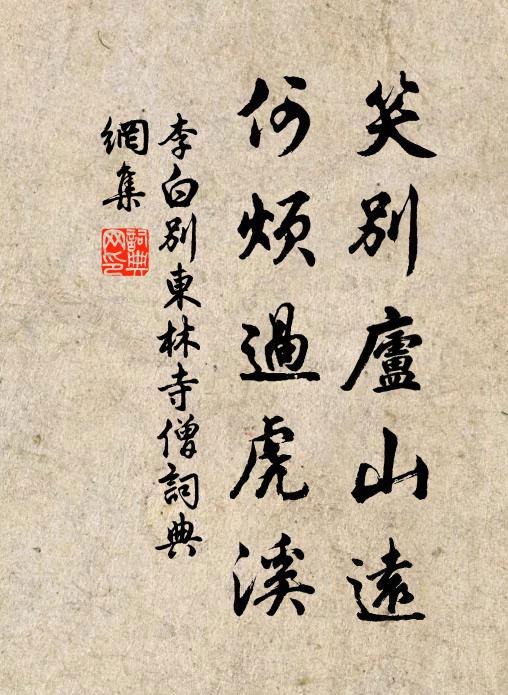 笑別廬山遠
何煩過虎溪
李白別東林寺僧詞典
網集
詞典
网印